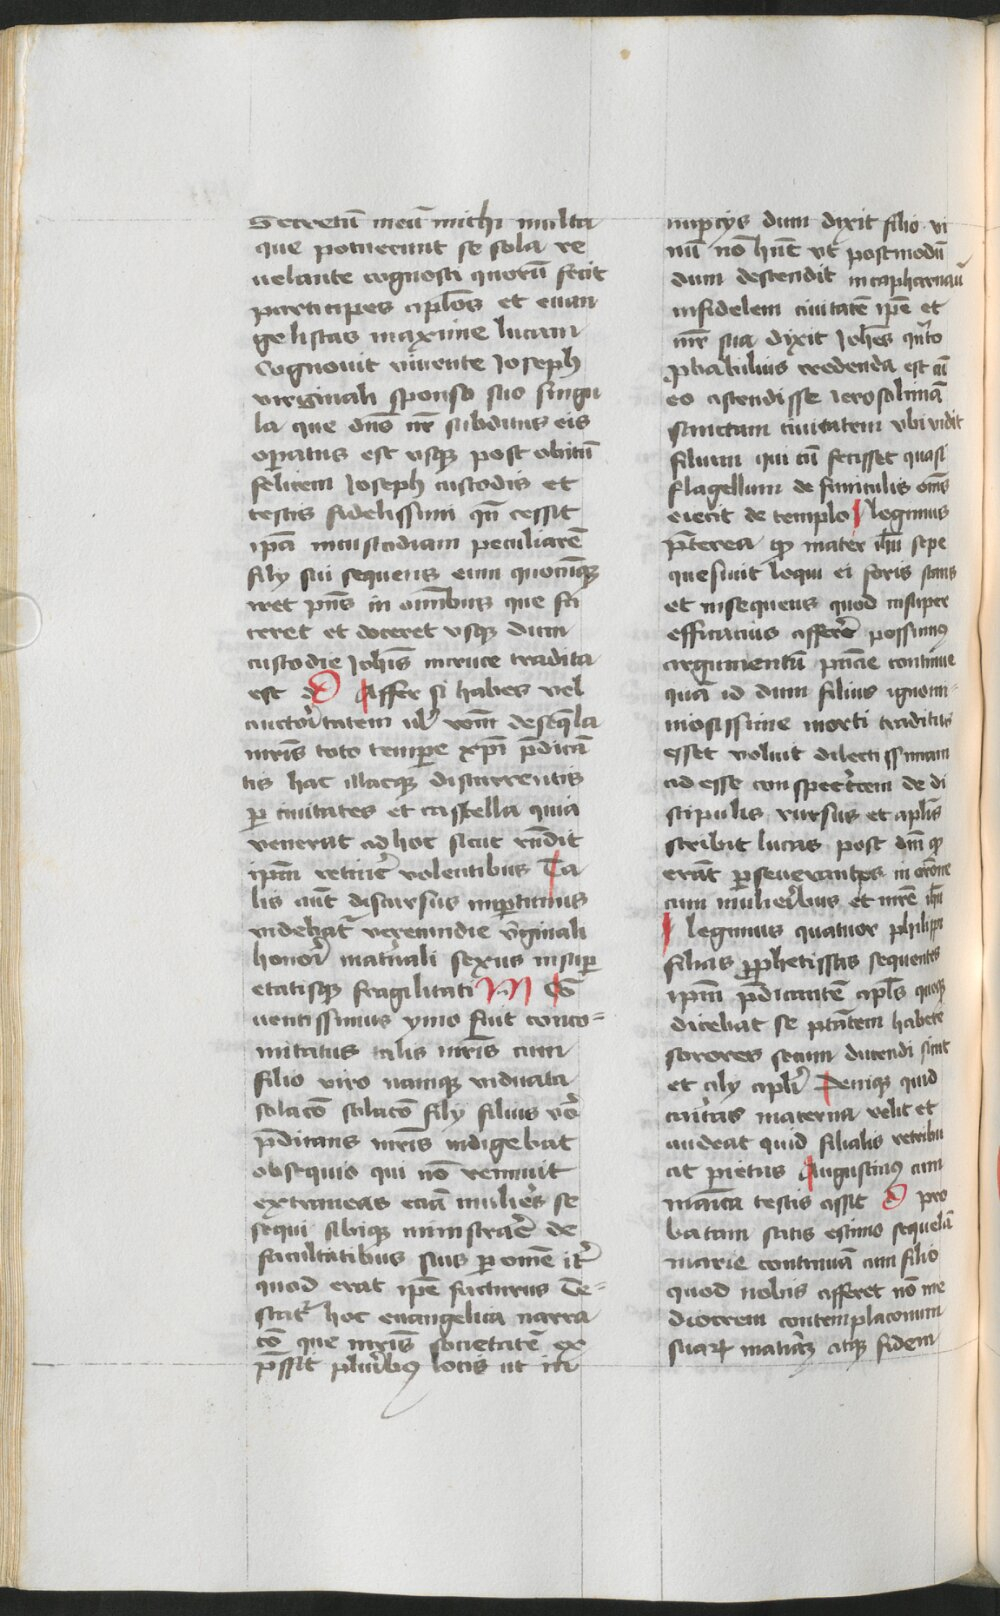 Secretū meū michi multa
que potuerunt se sola re
uelante cognosci quorū fecit
participes aplōs et euan
gelistas maxime lucam
Cognouit viuente Joseph
virginali sponso suo singu
la que dn̄s nr̄ subditus eis
opatus est vsq; post obitū
felicem Joseph custodis et
testis fidelissimi qn̄ cessit
ip̄a in custodiam peculiarē
filij sui sequens eum quocūq;
iret pn̄s in omībus que fa
ceret et doceret vsq; dum
custodie Joh̄is in cruce tradita
est D Affer si habes vel
auctoritatem ul̓ rōm de seq̄la
mr̄is toto tempe xp̄i p̄dicā
tis hac illacq; discurrentis
p ciuitates et castella quia
venerat ad hoc sicut rn̄dit
ip̄m retinē volentibus Ta
lis aūt discursus inptinens
videbat̄ verecundie v̓ginali
honori mat̓nali sexus insup
etatisq; fragilitati M Con
uentissimus ymo fuit conco=
mitatus talis mr̄is cum
filio viro namq; viduata
solacō solacō filij filius vō
p̄dicans mr̄is indigebat
obsequio qui nō rennuit
extraneas eciā mulieres se
sequi sibiq; ministrare de
facultatibus suis p omē it̓
quod erat ip̄e facturus De=
scat̓ hoc euangelica narra
cō que mr̄is societatē ex
p̄ssit plurib9 locis ut in
nupcijs dum dixit filio vi
nū nō hn̄t vt postmodū
dum descendit in capharnaū
infidelem ciuitatē ip̄e et
mr̄ sua dixit Joh̄es qn̄to
p̄babilius credenda est cū
eo ascendisse ierosolimā
sanctam ciuitatem vbi vidit
filium qui cū fecisset quasi
flagellum de funiculis oēs
eiecit de templo legimus
p̄terea qd mater ih̄u sepe
quesiuit loqui ei foris stans
et insequens quod insuper
efficacius afferē possum9
argumentū pn̄cie continue
quā id dum filius ignomi=
niosissime morti traditus
esset voluit dilectissimam
adesse conspectricem de di
scipulis rursus et aplīs
scribit lucas post dn̄i qd
erāt pseuerantes in orōne
cum mulierbus et mr̄e ih̄u
legimus quatuor philippi
filias prophetissas sequentes
ip̄m p̄dicantē apl̄s quoq;
dicebat se ptātem habere
sorores secum ducendi sicut
et alij apl̄i Deniq; quid
caritas materna velit et
audeat quid filialis retribu
at pietas Augustin9 cum
monica testis assit D pro
batam satis estimo sequelā
marie continuā cum filio
quod nobis afferet nō me
diocrem contemplaconum
suarū mat̓iā atq; fidem